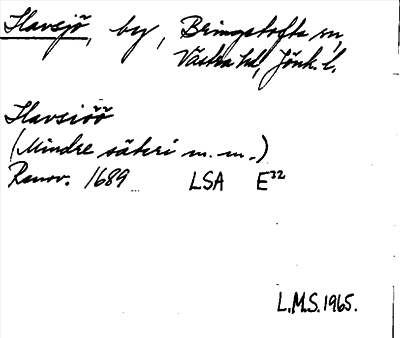 Havsjö, by, Bringetofta sn,
Västra hd, Jönk. l.
Havsiöö
(Mindre säteri m. m.)
Renov. 1689 LSA E22
L.M.S. 1965.